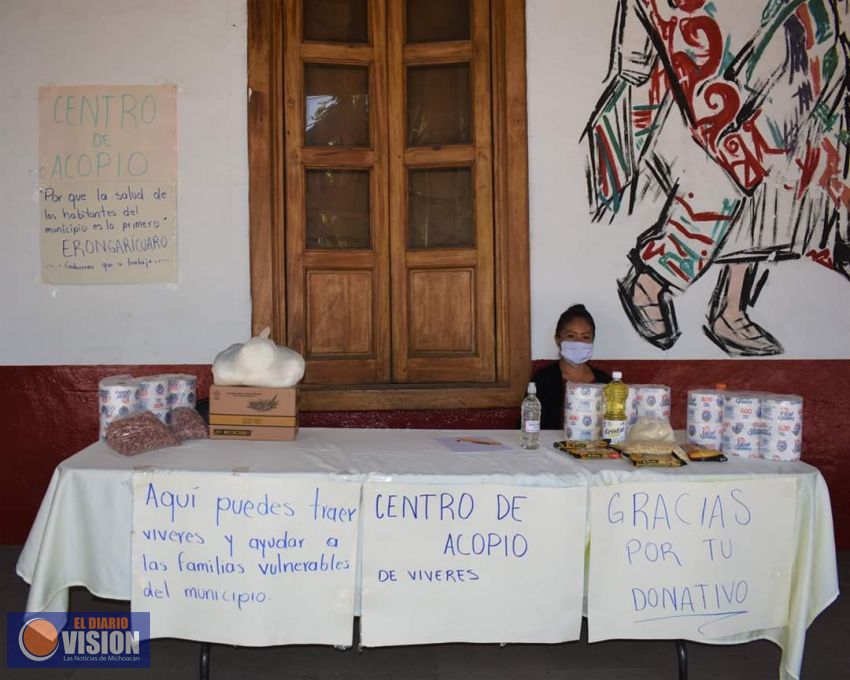 CENTRO
DE
ACOPIO
Por que la salud de
los habitantes del
municipio es lo primero
ERONGARÍCUARO
Gobierno que trabaja
Aquí puedes traer
viveres y ayudar a
las familias vulnerables
del municipio.
CENTRO DE
ACOPIO
DE VIVERES
GRACIAS
POR TU
DONATIVO
600
600
600
600
Cristal
EL DIARIO
VISIÓN
Las Noticias de Michoacán